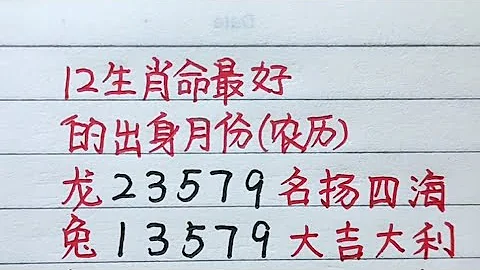 12生肖命最好
的出身月份(农历)
龙23579名扬四海
兔13579大吉大利